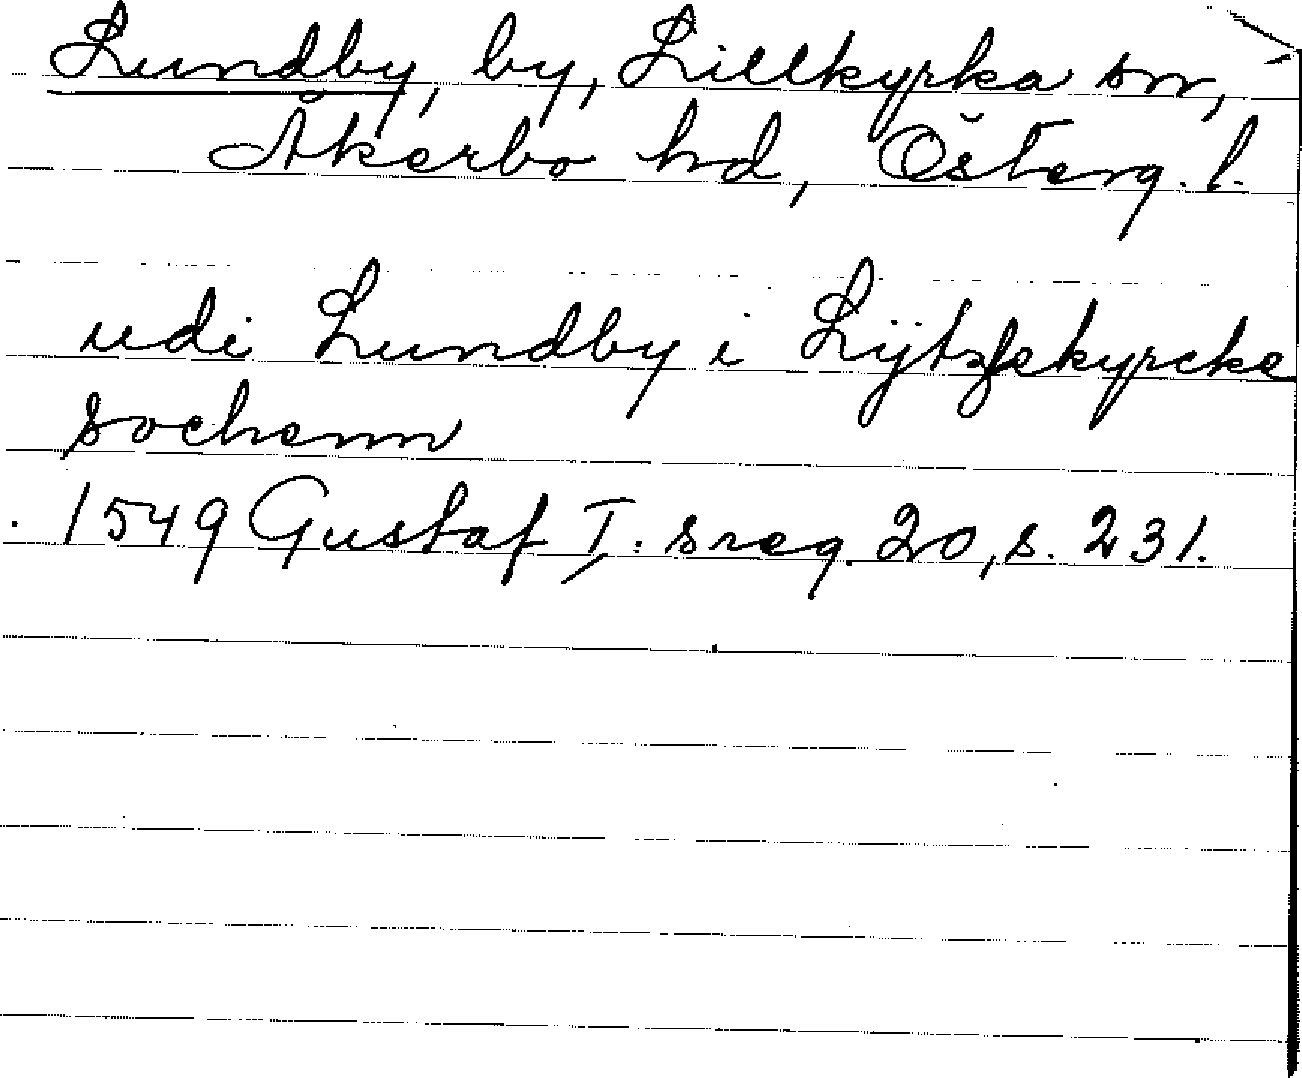 Lundby, by, Lillkyrka sn,
Åkerbo hd, Österg. l.
udi Lundby i Lÿtzlekyrcke
sochenn
1549 Gustaf I:s reg. 20, s. 231.